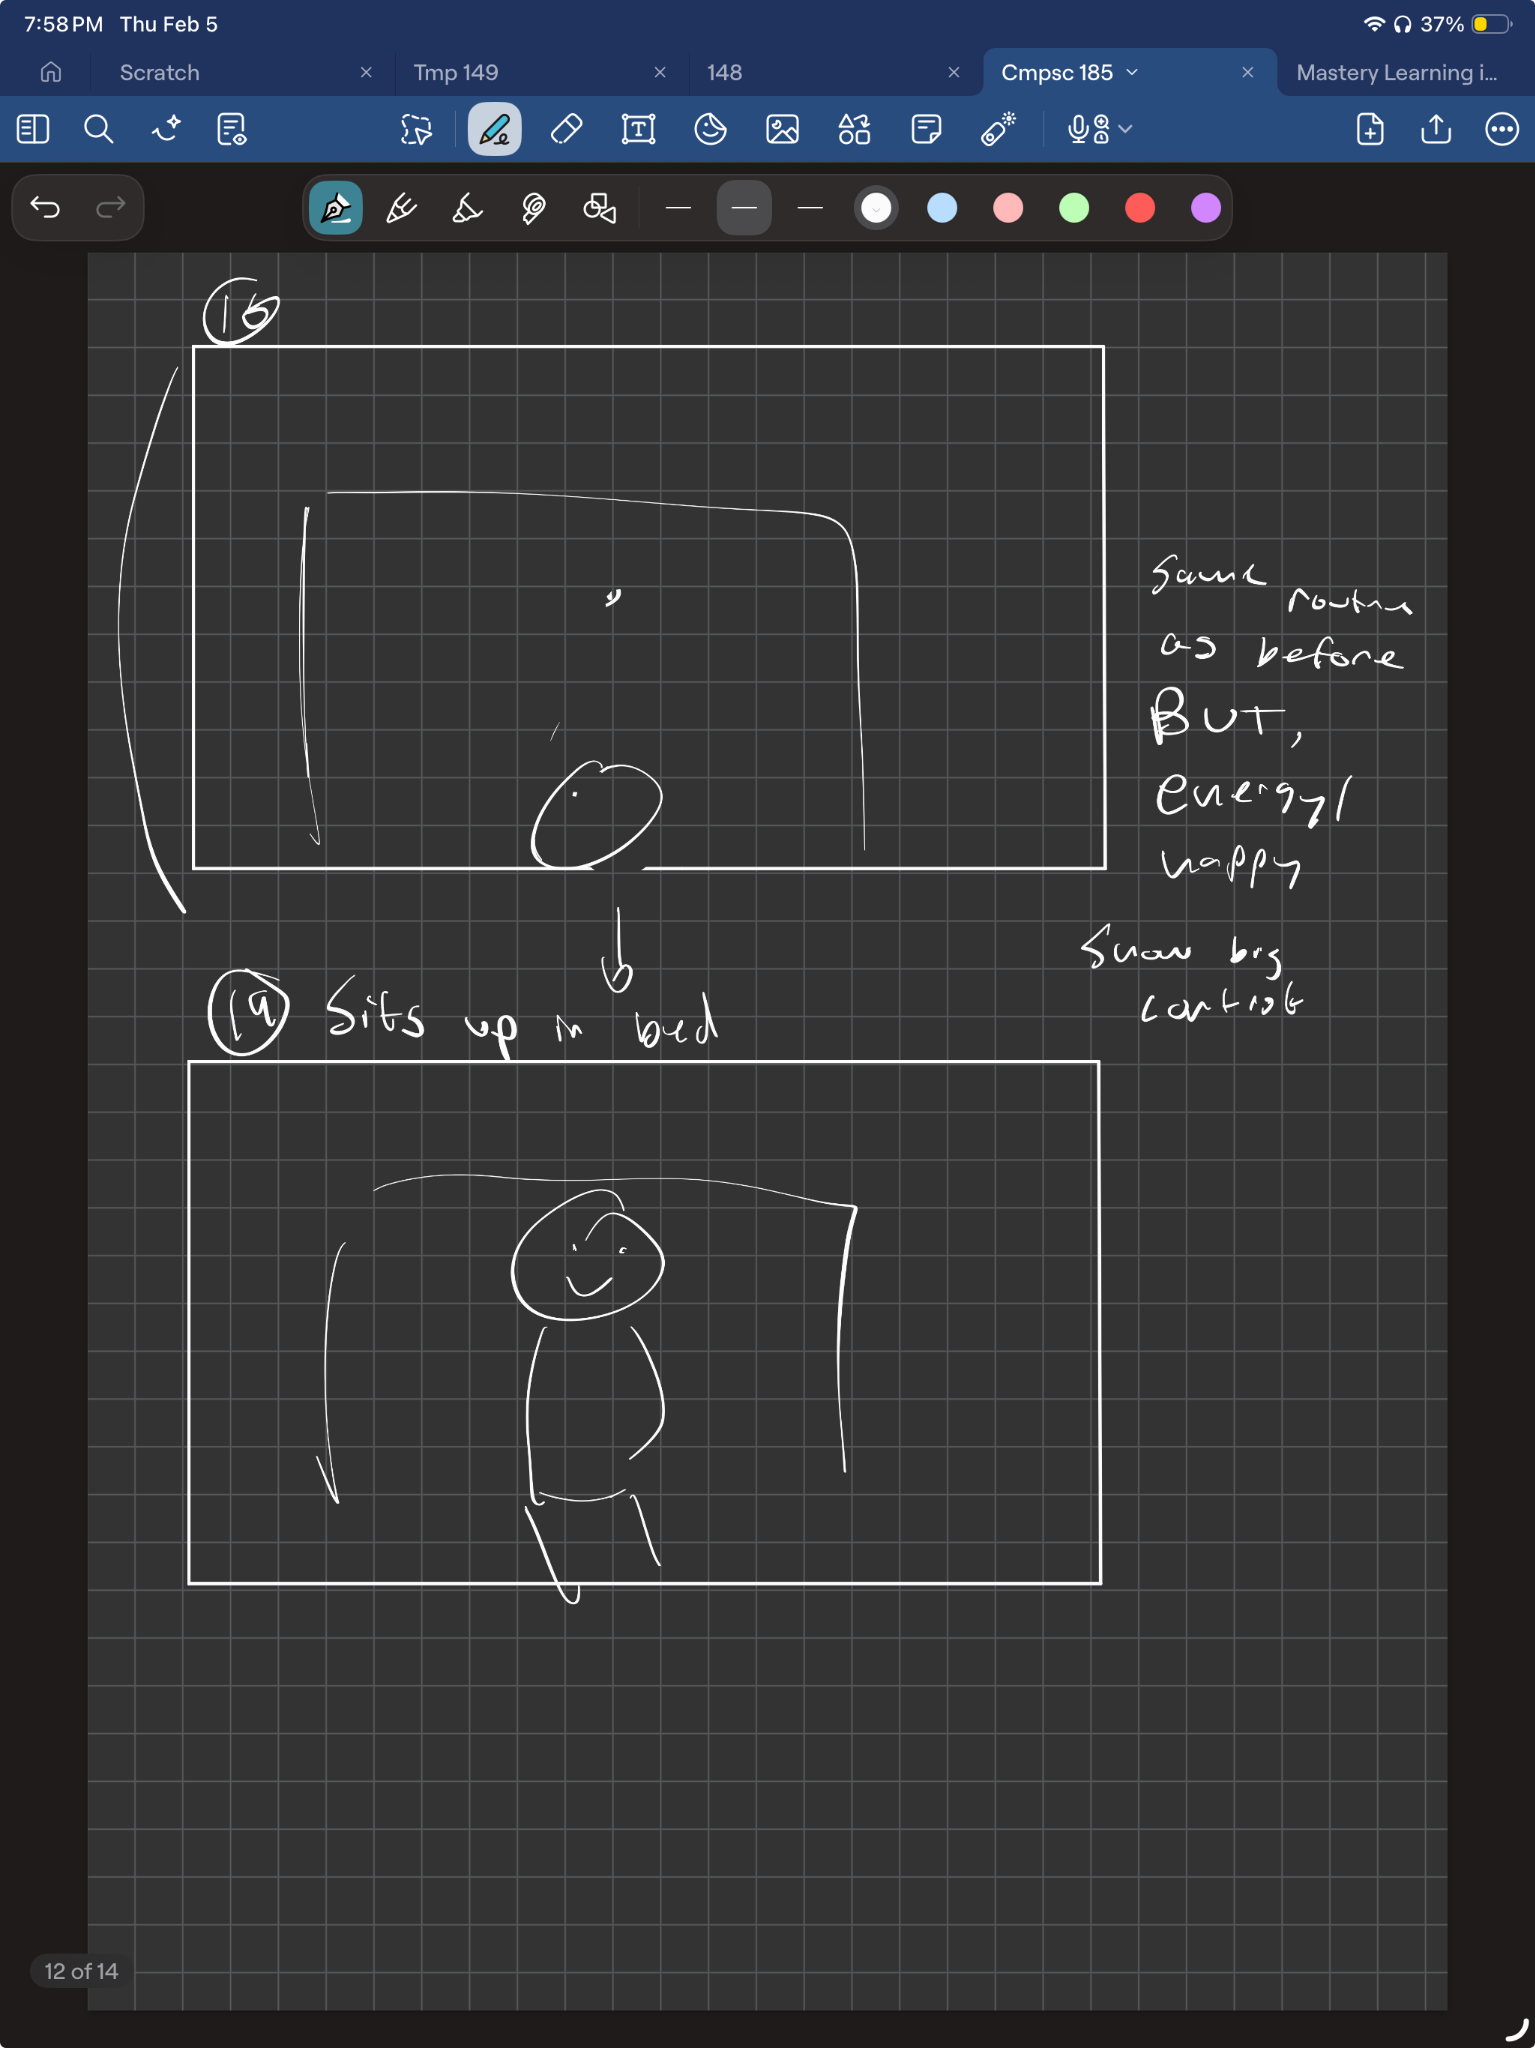 7:58 PM Thu Feb 5
37%
Scratch
Tmp 149
148
Cmpsc 185
Mastery Learning i...
Same routine
as before
BUT,
energy/
happy
Show big
19 Sits up in bed
12 of 14